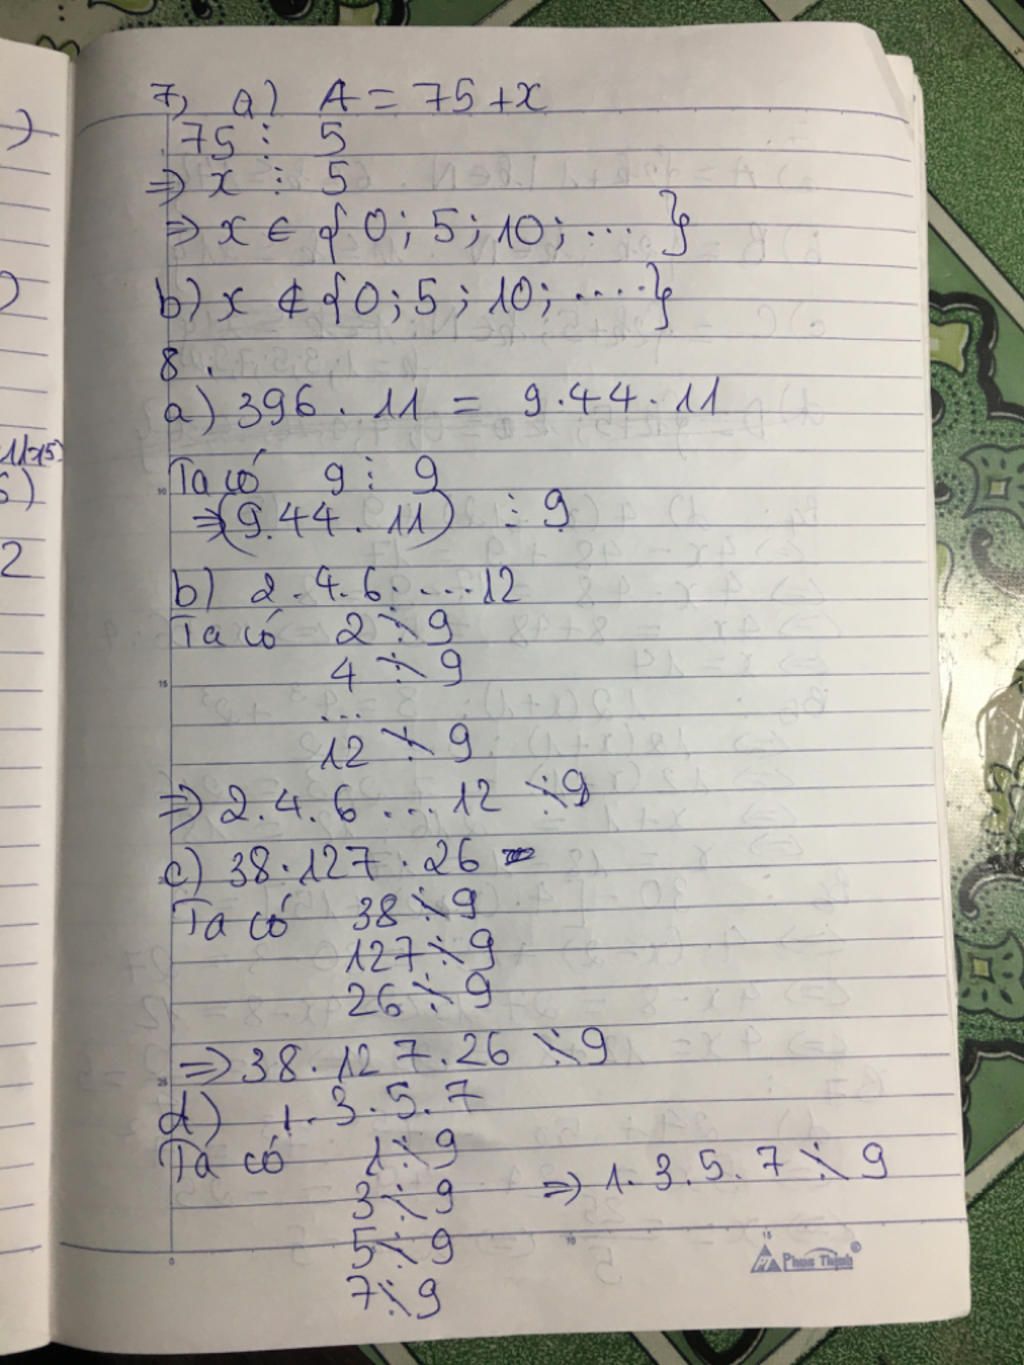 7, a) A = 75 + x
75 ⋮ 5
⇒ x ⋮ 5
⇒ x ∈ {0; 5; 10; ... }
b) x ∉ {0; 5; 10; ....}
8.
a) 396 . 11 = 9.44.11
Ta có 9 ⋮ 9
⇒ (9.44.11) ⋮ 9
b) 2.4.6. ...12
Ta có 2 ⋮̸ 9
4 ⋮̸ 9
...
12 ⋮̸ 9
⇒ 2.4.6 ... 12 ⋮̸ 9
c) 38.127.26
Ta có 38 ⋮̸ 9
127 ⋮̸ 9
26 ⋮̸ 9
⇒ 38.127.26 ⋮̸ 9
d) 1.3.5.7
Ta có 1 ⋮̸ 9
3 ⋮̸ 9 ⇒ 1.3.5.7 ⋮̸ 9
5 ⋮̸ 9
7 ⋮̸ 9
Phúc Thịnh